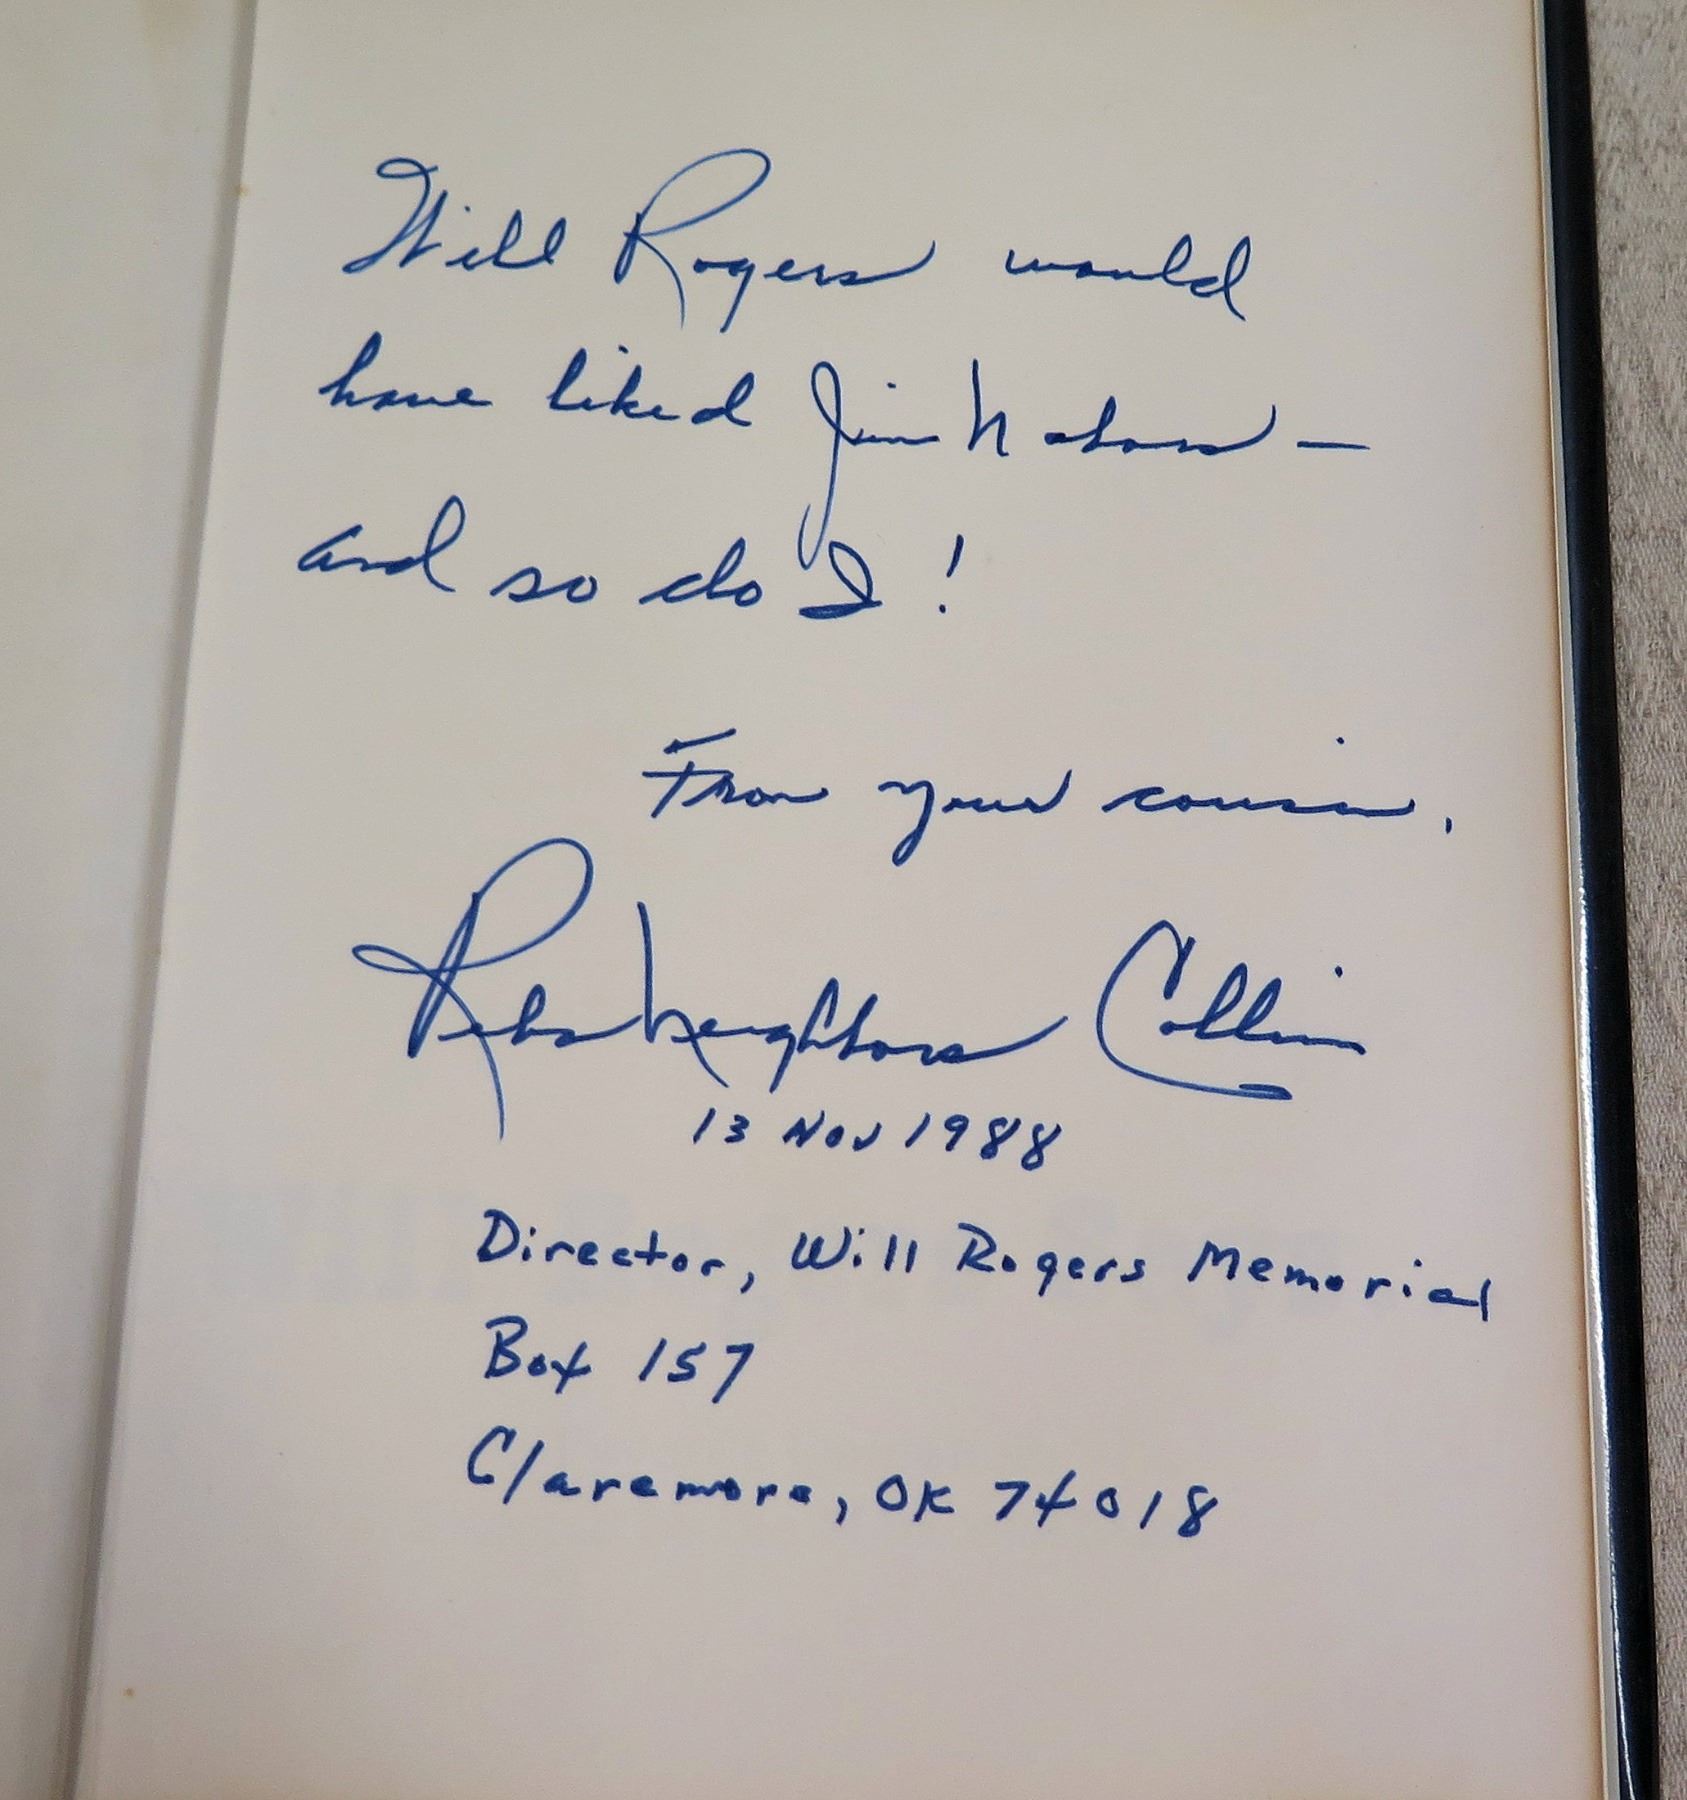 Will Rogers would
have liked Jim Nabors —
and so do I!
From your cousin,
Reba Neighbors Collins
13 Nov 1988
Director, Will Rogers Memorial
Box 157
Claremore, OK 74018